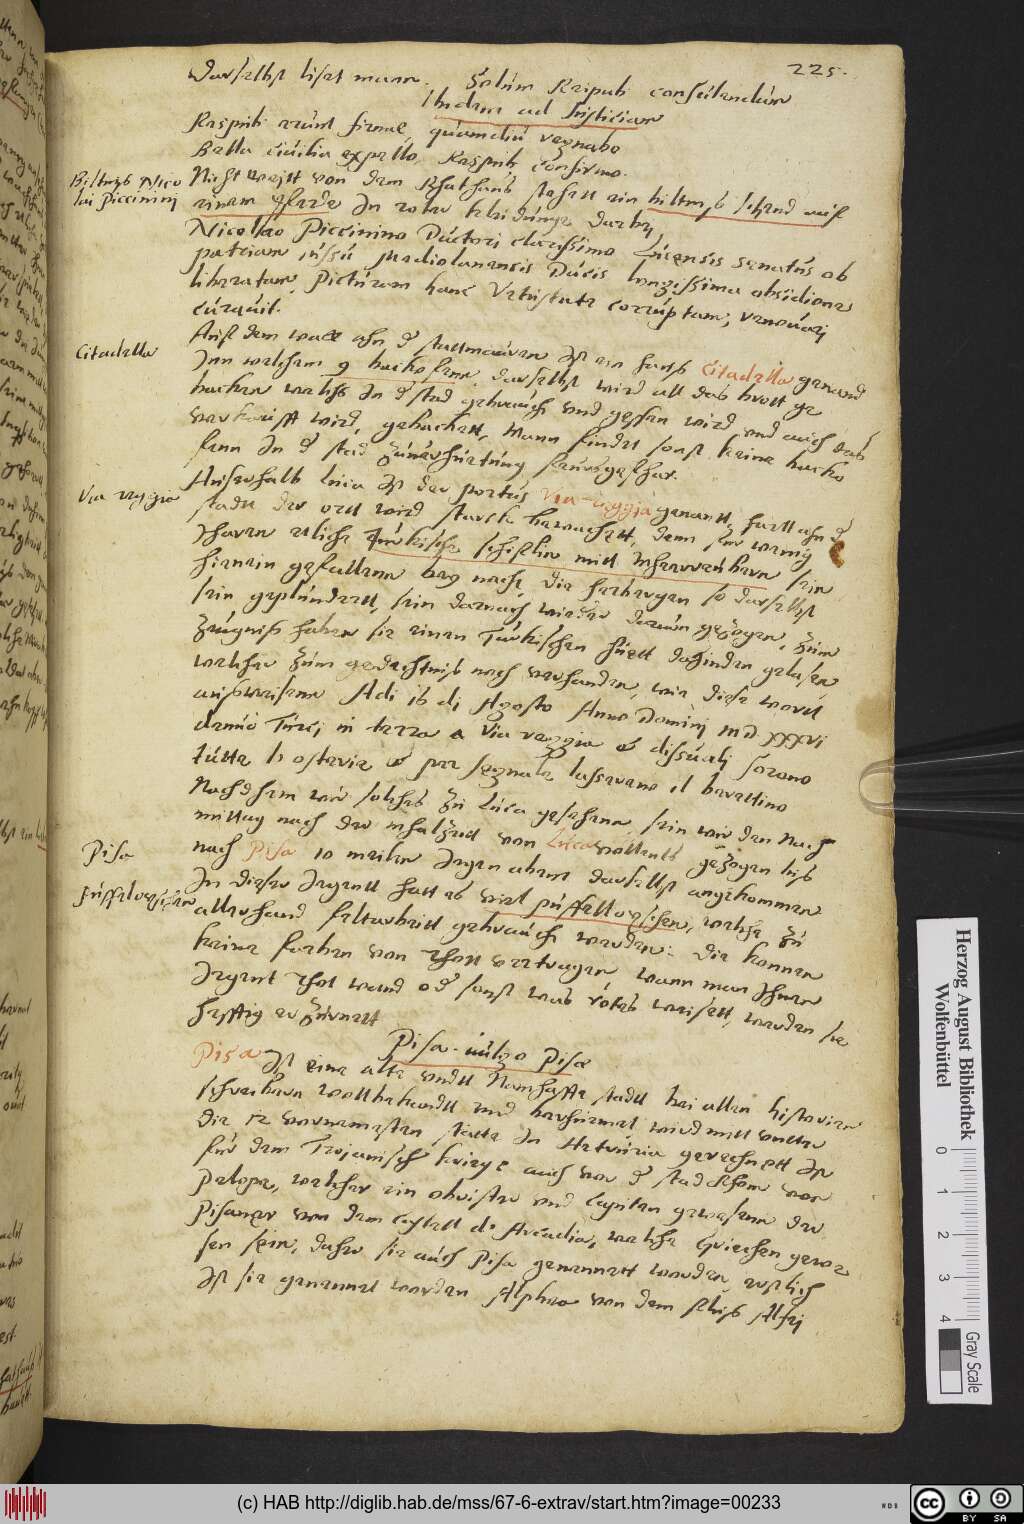 225.
Daselbst liset mann. Solum Reipub: consulendum
Iudem ad Iusticiam
Respub: erunt firmae, quamdiu regnabo
Bella ciuilia expello, Respub: confirmo.
Biltnus Nico
lai Piccinini
Nicht weitt von dem Rhathaus stehett ein biltnus sitzend auf
einem Pferde In roter kleidunge darbey
Nicolao Piccinino Ductori clarissimo Lucensis senatus ob
patriam iussu Mediolanensis Ducis longissima obsidione
liberatam, Picturam hanc Vetustate corruptam, renouari
curauit.
Citadella
Auf dem wall ahn d stattmauren Ist ein haus Citadella genand
Inn welchem 9 backofenn, daselbst wird all das brott ge
backen welchs In d stad gebrauch und gessen wird und auch das
verkaufft wird, gebachett, Mann findet sonst keine backo
fenn In d stad
Via reggia
Auserhalb Luca Ist der portus Via-reggia genantt, hartt ahn d
der ortt wird starck bewachett, denn fur wenig
Jharen etliche Turkische schiflin mitt
hierein gefallenn bey nacht, die herbergen so daselbst
sein geplundertt, sein darnach wieder davon gezogen, zum
Zeugnis haben sie einen Turkischen huett dahinden gelasen
welcher zum gedechtnis noch verhanden, wie diese wortt
ausweisenn Adi 16 di Agosto Anno Domini MD XXXVI
Turci in terra a Via reggia et dissualj sorono
tutte l: ostarie et per segnale lassarano il berettino
Nachdhem wir solches zu Luca gesehenn, sein wir den Nach
mittag nach der mhalzeit von Luca vollents gezogen bis
Pisa
nach Pisa 10 meilen Jegen abent daselbst angekommen
Puffeloxsen
In dieser Jegentt hatt es viel puffell oxsen, welche zu
allerhand feltarbeitt gebraucht werden: die konnen
keine farben von Rhott vertragen wann man Ihnen
Jegent Rhot wand od sonst was rotes weisett, werden sie
hefftig erzurnett
Pisa. uulgo Pisae
Pisa Ist eine alte undtt Namhaffte stadtt bei allen historien
schreibern wollbekandtt und berhumet wird mitt unter
die 12 vornemesten stette In Hetruria gerechnett Ist
fur dem Trojanisch kriege auch vor d stad Rhom von
Pelope, welcher ein obrister und Capiten gewesenn der
Pisaner von dem Castell di Arcadia, welche Griechen gewe
sen sein, daher sie auch Pisa genennett worden, erstlich
Ist sie genennet worden Alphea von dem fluss Alfej
(c) HAB http://diglib.hab.de/mss/67-6-extrav/start.htm?image=00233
Herzog August Bibliothek
Wolfenbüttel
0 1 2 3 4
Gray Scale
WDB
cc BY SA